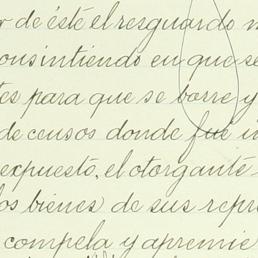 de éste el resguardo
consintiendo en que se
para que se borre y
de censos donde fué
expuesto, el otorgante
los bienes de sus repre
compela y apremie